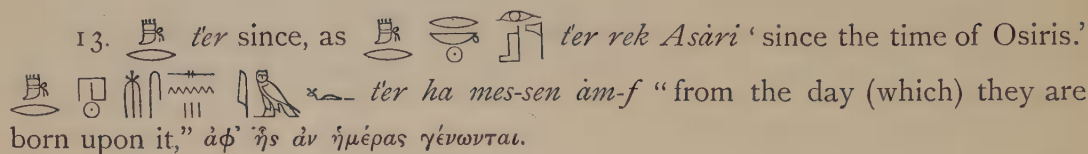 13. t'er since, as t'er rek Asȧri ‘since the time of Osiris.’
t'er ha mes-sen ȧm-f “from the day (which) they are
born upon it,” ἀφ’ ἧς ἀν ἡμέρας γένωνται.